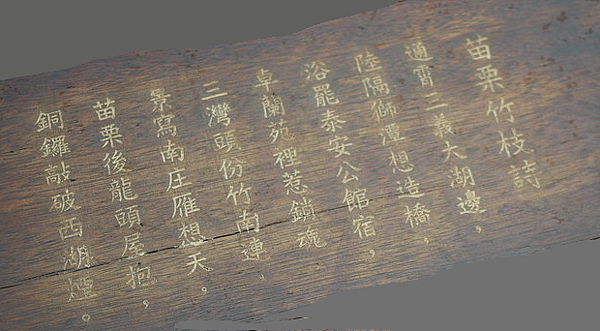 苗栗竹枝詩
通霄三義大湖邊，
陸隔獅潭想造橋，
浴罷泰安公館宿，
卓蘭苑裡惹鎖魂
三灣頭份竹南連、
景寫南庄雁想天。
苗栗後龍頭屋抱，
銅鑼敲破西湖煙。